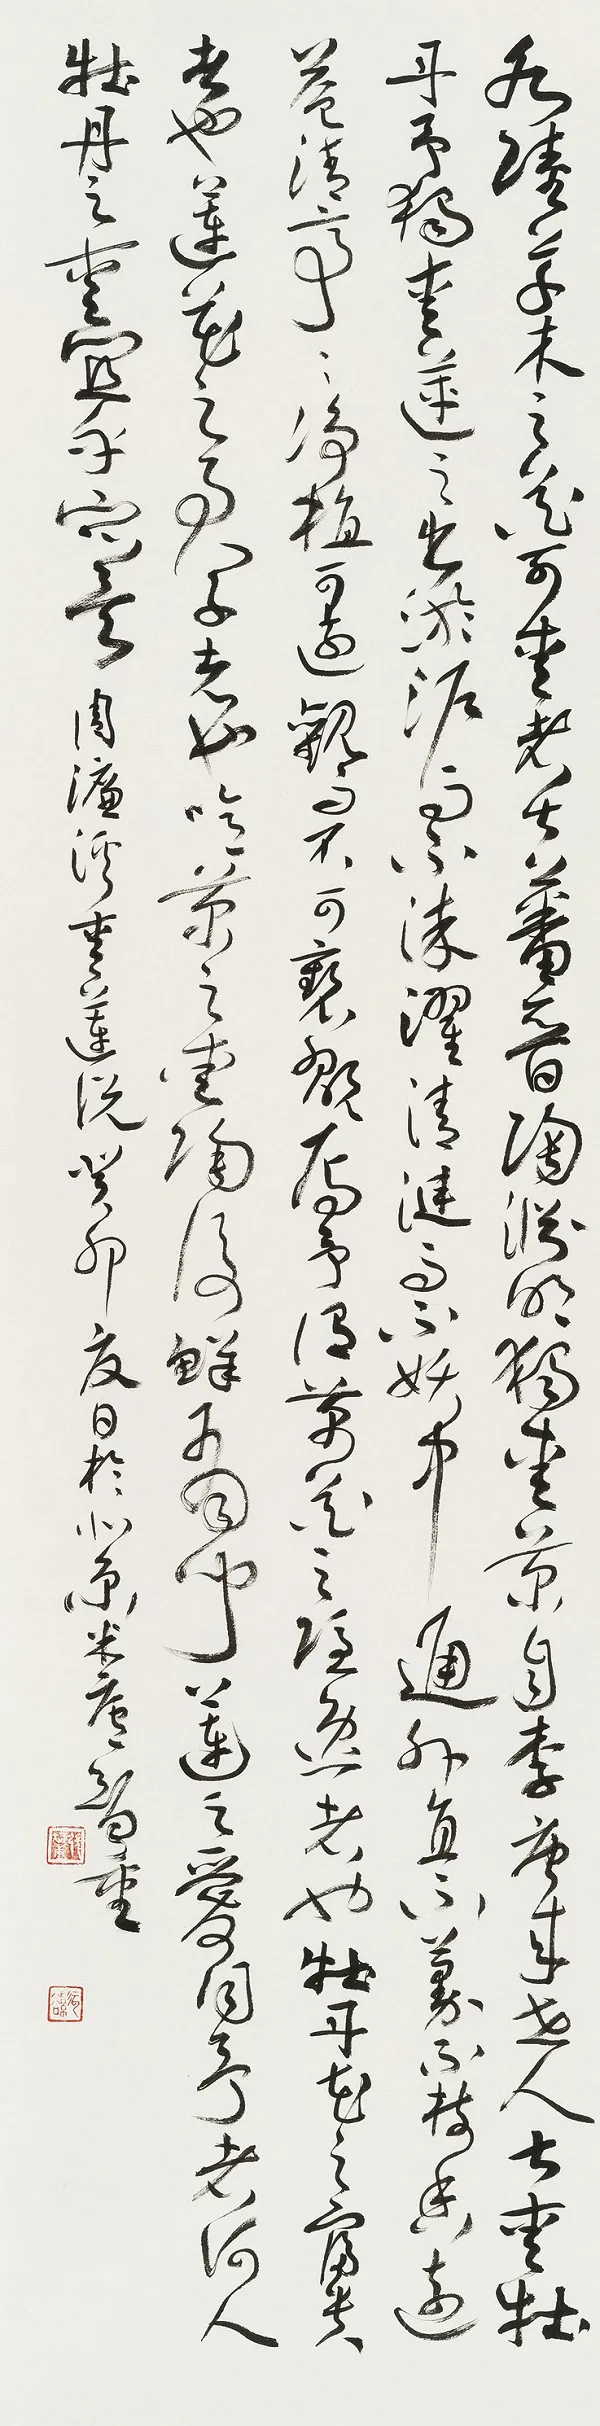 水陸草木之花可愛者甚蕃晉陶淵明獨愛菊自李唐來世人甚愛牡
丹予獨愛蓮之出淤泥而不染濯清漣而不妖中通外直不蔓不枝香遠
益清亭〻淨植可遠觀而不可褻翫焉予謂菊花之隱逸者也牡丹花之富貴
者也蓮花之君子者也噫菊之愛陶後鮮有聞蓮之愛同予者何人
牡丹之愛宜乎眾矣周濂溪愛蓮說癸卯夏日於北京米庵智重